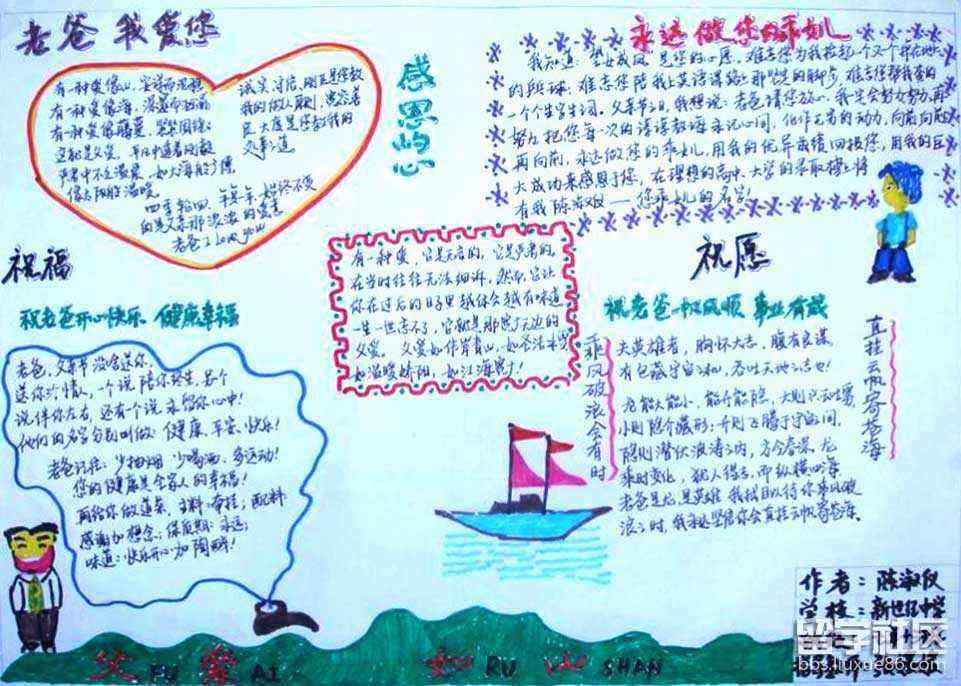 老爸 我爱您
有一种爱像山，宽容而沉稳
有一种爱像海，深邃而
有一种爱像
这就是父爱，平凡中
像太阳般温暖
诚实守信、
我的做人原则，宽容
大度是您教我的
处事之道
四季轮回 年复一年 始终不变
的是父亲那浓浓的爱意
老爸 I Love you
感恩的心
永远做您的乖女儿
我知道：望女成凤 是您的心愿，难忘您为我捡起一个又一个
的乒乓球；难忘您陪我上英语课
一个个生字生词，父亲节之日，我想说：老爸请您放心，我定会努力努力再
努力 把您每一次的谆谆教诲 永记心间，化作无穷的动力，向前向前
再向前，永远做您的乖女儿，用我的优异成绩回报您，用我的巨
大成功来感恩于您，在理想的高中、大学的录取榜上将
有我陈淑仪——您乖女儿的名字！
祝福
祝老爸开心快乐 健康幸福
老爸，父亲节 没啥送你，
送你份情，一个说 陪你终生，另个
说伴你左右，还有个说 永留你心中！
他们的名字分别叫做：健康、平安、快乐！
老爸记住：少抽烟 少喝酒 多运动！
您的健康是全家人的幸福！
再给你做道菜，主料：牵挂；配料：
感谢加想念；保质期：永远；
味道：快乐开心加陶醉！
有一种爱，它是无言的，它是严肃的，
在当时往往无法细诉，然而，它让
你在过后的日子里 越体会越有味道
一生一世忘不了，它就是那宽广无边的
父爱。父爱如伟岸青山，如圣洁冰雪
如温暖娇阳，如江海宽广！
祝愿
祝老爸一帆风顺 事业有成
乘风破浪会有时
直挂云帆济沧海
夫英雄者，胸怀大志，腹有良谋，
有包藏宇宙之机，吞吐天地之志也！
龙能大能小，能升能隐，大则兴云吐雾，
小则隐介藏形；升则飞腾于宇宙之间，
隐则潜伏于波涛之内，方今春深，龙
乘时变化，犹人得志，而纵横四海。
老爸是龙是英雄 我拭目以待你乘风破
浪之时，我永远坚信你会直挂云帆济沧海。
作者：陈淑仪
学校：新世纪中学
父 FU 爱 AI 如 RU 山 SHAN
留学社区
bbs.liuxue86.com